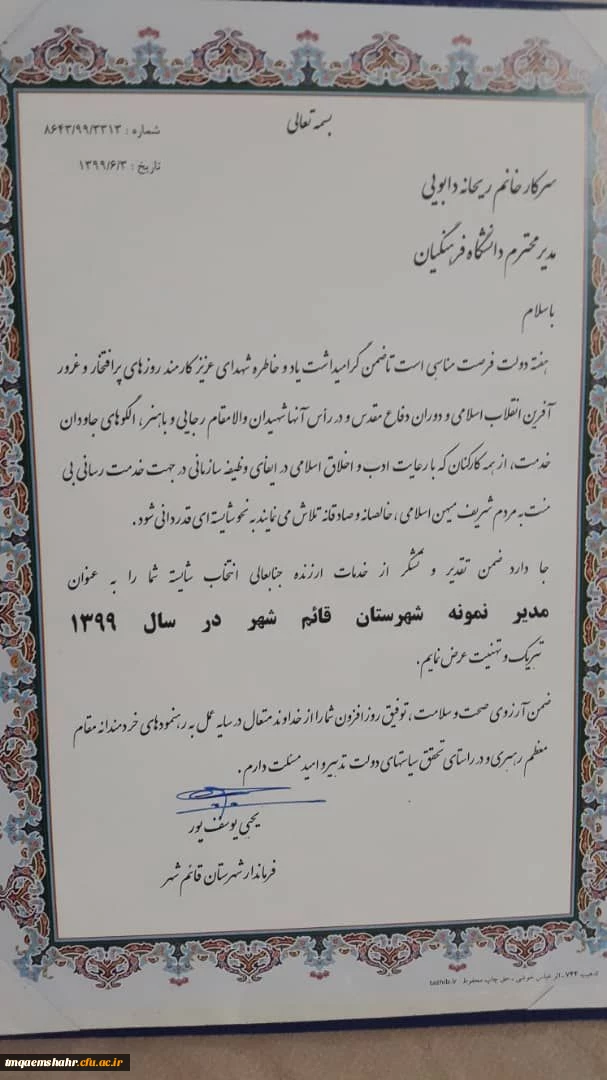 بسمه تعالی
شماره : ۸۶۴۳/۹۹/۳۳۱۳
تاریخ : ۱۳۹۹/۶/۳
سرکار خانم ریحانه دابویی
مدیر محترم دانشگاه فرهنگیان
باسلام
هفته دولت فرصت مناسبی است تا ضمن گرامیداشت یاد و خاطره شهدای عزیز کارمند روزهای پرافتخار و غرور
آفرین انقلاب اسلامی و دوران دفاع مقدس و در رأس آنها شهیدان والامقام رجایی و باهنر، الگوهای جاودان
خدمت، از همه کارکنان که با رعایت ادب و اخلاق اسلامی در ایفای وظیفه سازمانی در جهت خدمت رسانی بی
منت به مردم شریف میهن اسلامی، خالصانه و صادقانه تلاش می نمایند به نحو شایسته ای قدردانی شود.
جا دارد ضمن تقدیر و تشکر از خدمات ارزنده جنابعالی انتخاب شایسته شما را به عنوان
مدیر نمونه شهرستان قائم شهر در سال ۱۳۹۹
تبریک و تهنیت عرض نمایم.
ضمن آرزوی صحت و سلامت، توفیق روزافزون شما را از خداوند متعال در سایه عمل به رهنمودهای خردمندانه مقام
معظم رهبری و در راستای تحقق سیاستهای دولت تدبیر و امید مسئلت دارم.
یحیی یوسف پور
فرماندار شهرستان قائم شهر
تذهیب ۷۴۴ - اثر عباس خوشی - حق چاپ محفوظ tazhib.ir
tmqaemshahr.cfu.ac.ir